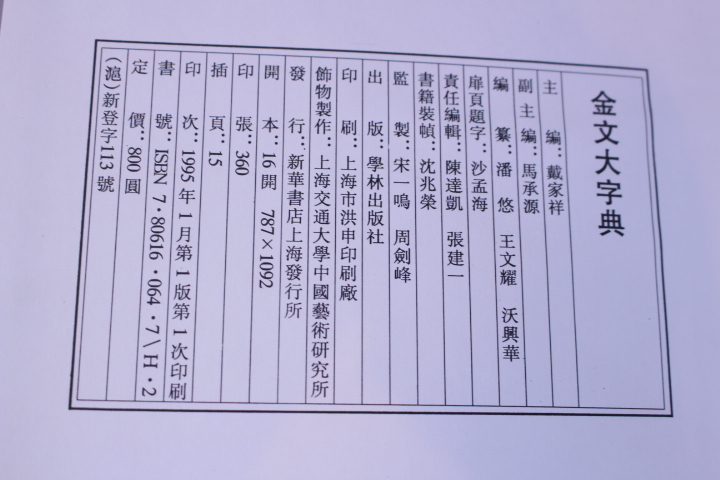 金文大字典
主編：戴家祥
副主編：馬承源
編纂：潘悠 王文耀 沃興華
扉頁題字：沙孟海
責任編輯：陳達凱 張建一
書籍裝幀：沈兆榮
監製：宋一鳴 周劍峰
出版：學林出版社
印刷：上海市洪申印刷廠
飾物製作：上海交通大學中國藝術研究所
發行：新華書店上海發行所
開本：16開 787×1092
印張：360
插頁：15
印次：1995年1月第1版第1次印刷
書號：ISBN 7·80616·064·7\H·2
定價：800圓
(滬)新登字113號